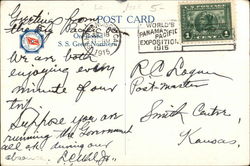 Greeting from
the big Pacific
POST CARD
On Board
S. S. Great Northern
1915
WORLD'S
PANAMA-PACIFIC
EXPOSITION
1915
1
We are both
enjoying every
minute of our
trip
Suppose you are
running the Government
all still during our
absence.
R. A. Logue
Postmaster
Smith Center,
Kansas,